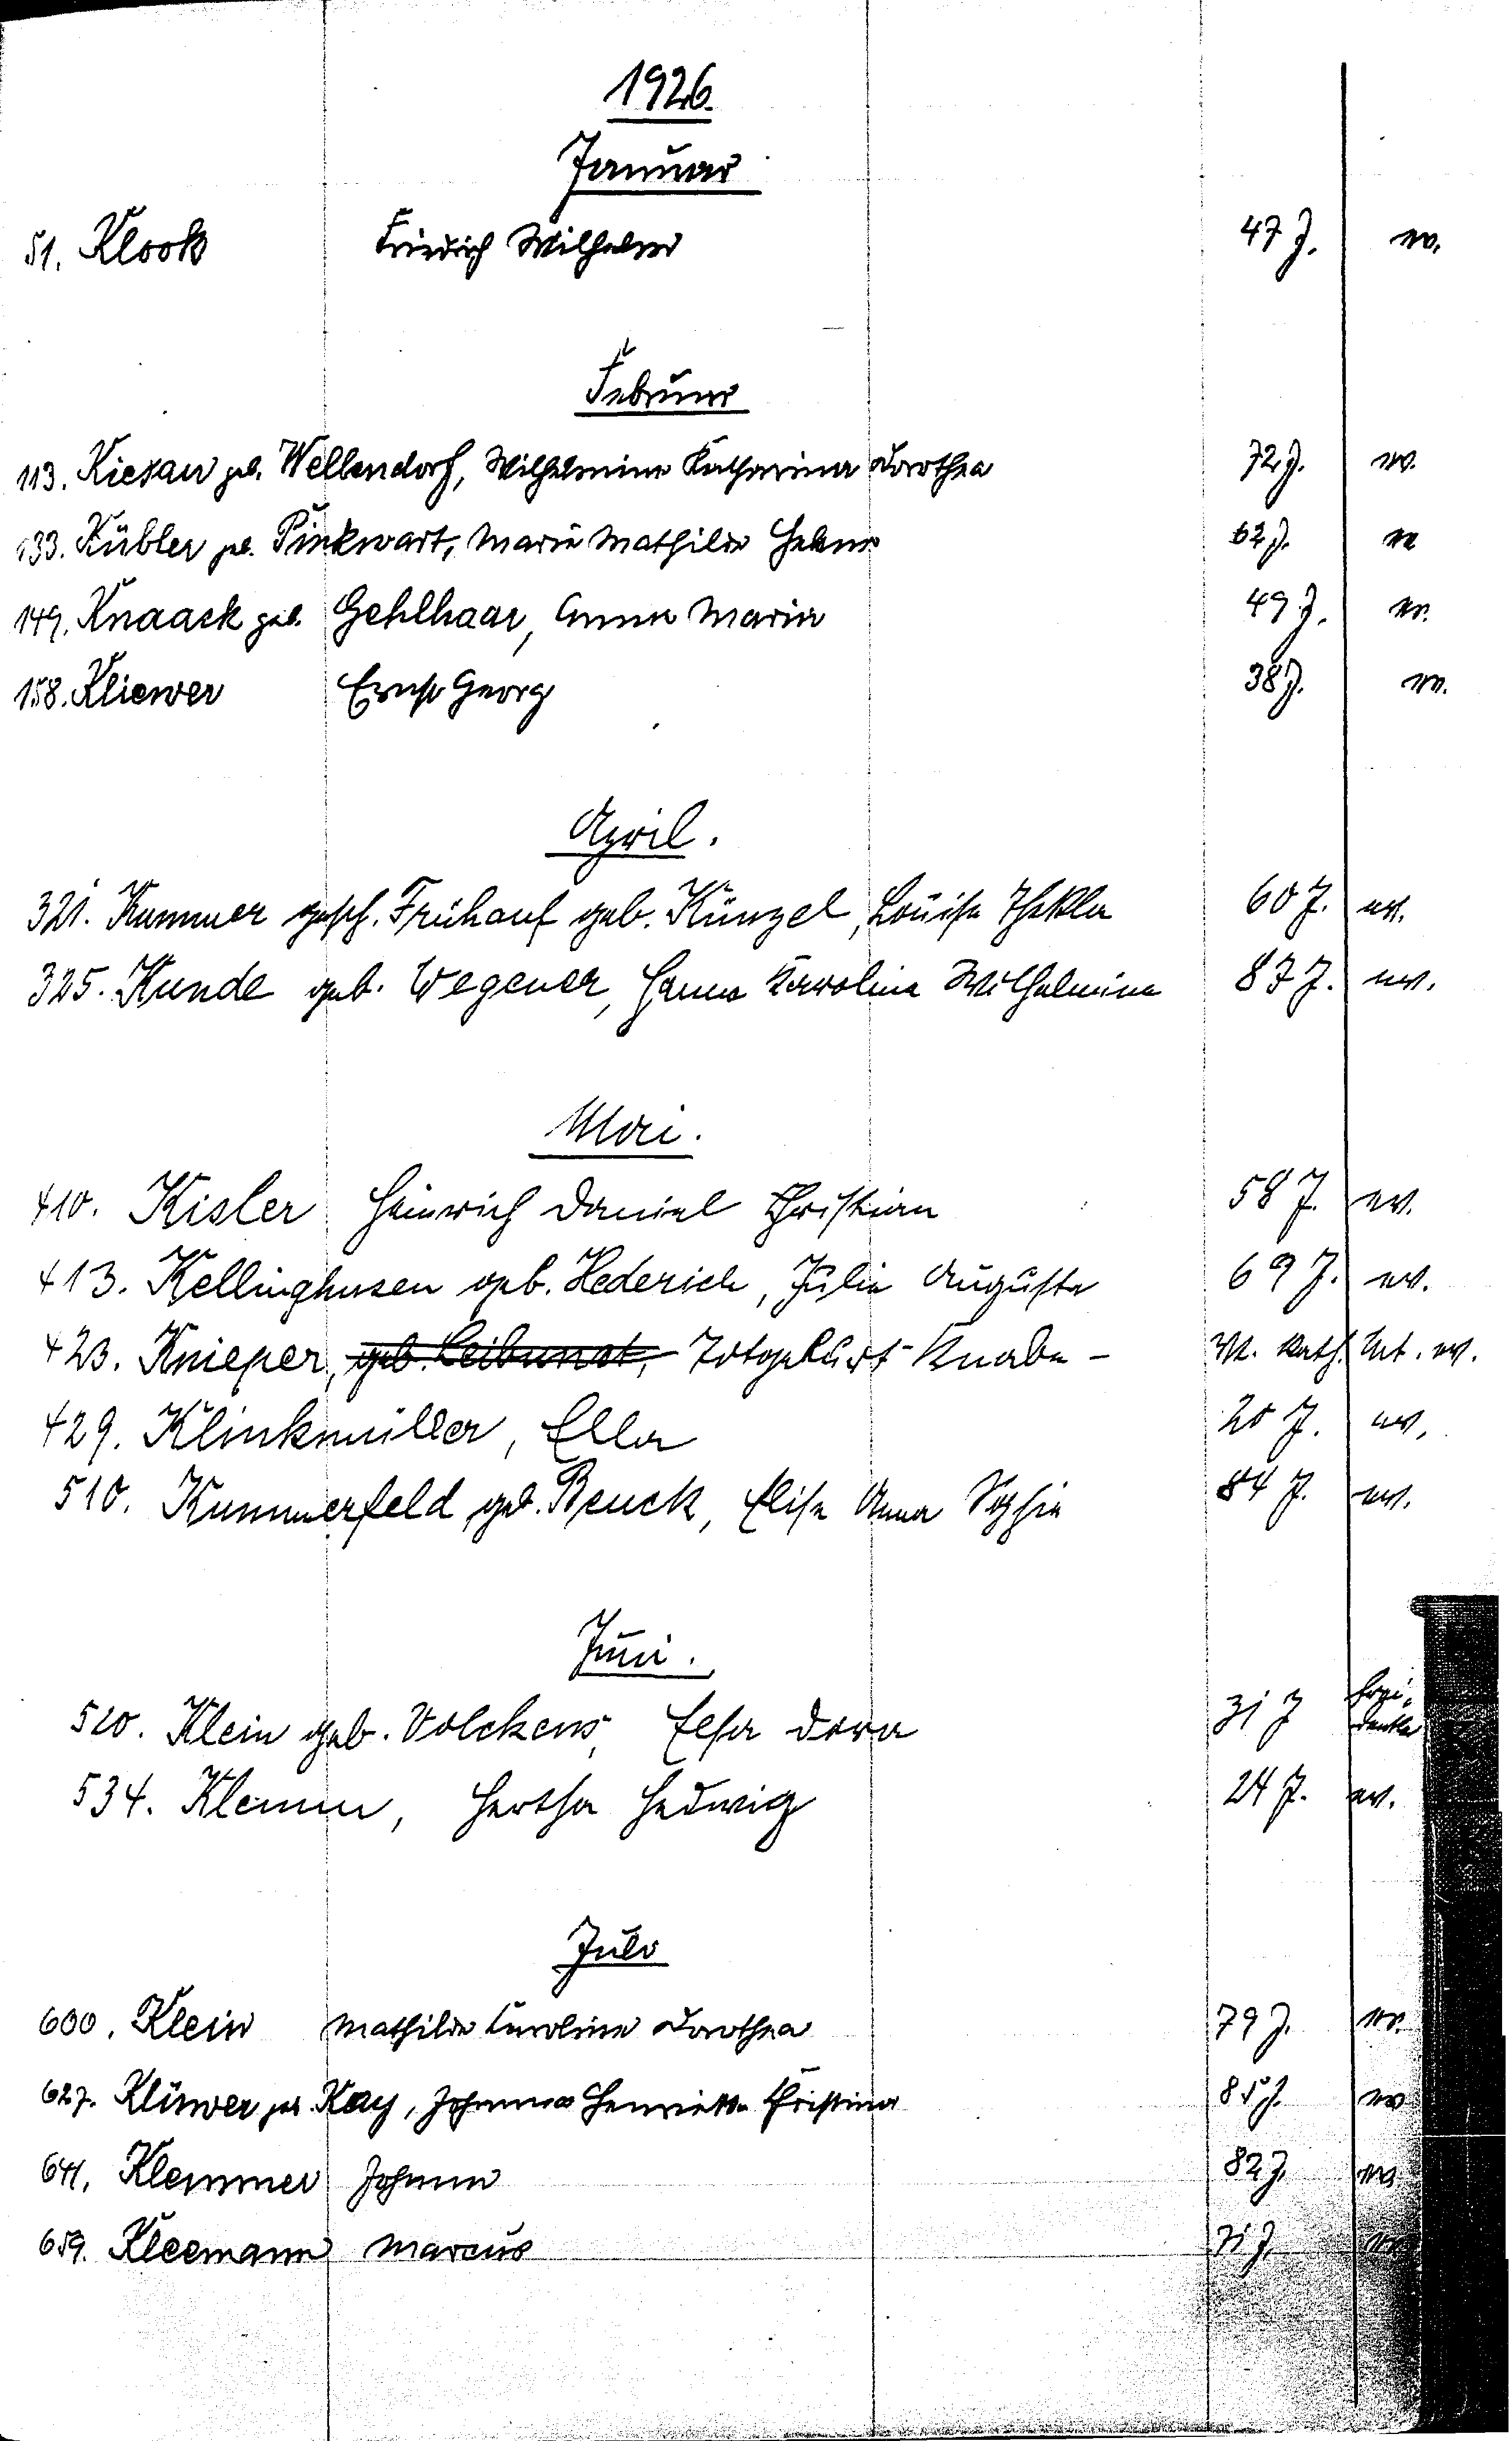 1926.
Januar
51. Klook Friedrich Wilhelm 47 J. ev.
Februar
113. Kiesau geb. Wellendorf, Wilhelmine Katharina Dorothea 72 J. ev.
133. Kübler geb. Pinkwart, Marie Mathilde Helene 62 J. ev
149. Knaack geb. Gehlhaar, Anna Maria 49 J. ev.
158. Kliewer Ernst Georg 38 J. ev.
April.
321. Kummer gesch. Frühauf geb. Künzel, Louise Thekla 60 J. ev.
325. Kunde geb. Wegener, Hanna Karolina Wilhelmine 87 J. ev.
Mai.
410. Kisler Heinrich Daniel Christian 58 J. ev.
413. Kellinghusen geb. Hederich, Julie Auguste 69 J. ev.
423. Knieper, geb. Leibunat, Totgeburt - Knabe - M. kath. Vat. ev.
429. Klinkmüller, Ella 20 J. ev.
510. Kummerfeld geb. Beuck, Elise Anna Sophie 84 J. ev.
Juni.
520. Klein geb. Volckens, Elsa Dora 31 J
534. Klemm, Hertha Hedwig 24 J. ev.
Juli
600. Klein Mathilde Caroline Dorothea 79 J. ev.
627. Klüwer geb. Kay, Johanna Henriette Christina 85 J. ev
641. Klemmer Johann 82 J. ev.
659. Kleemann Marcus 71 J. ev